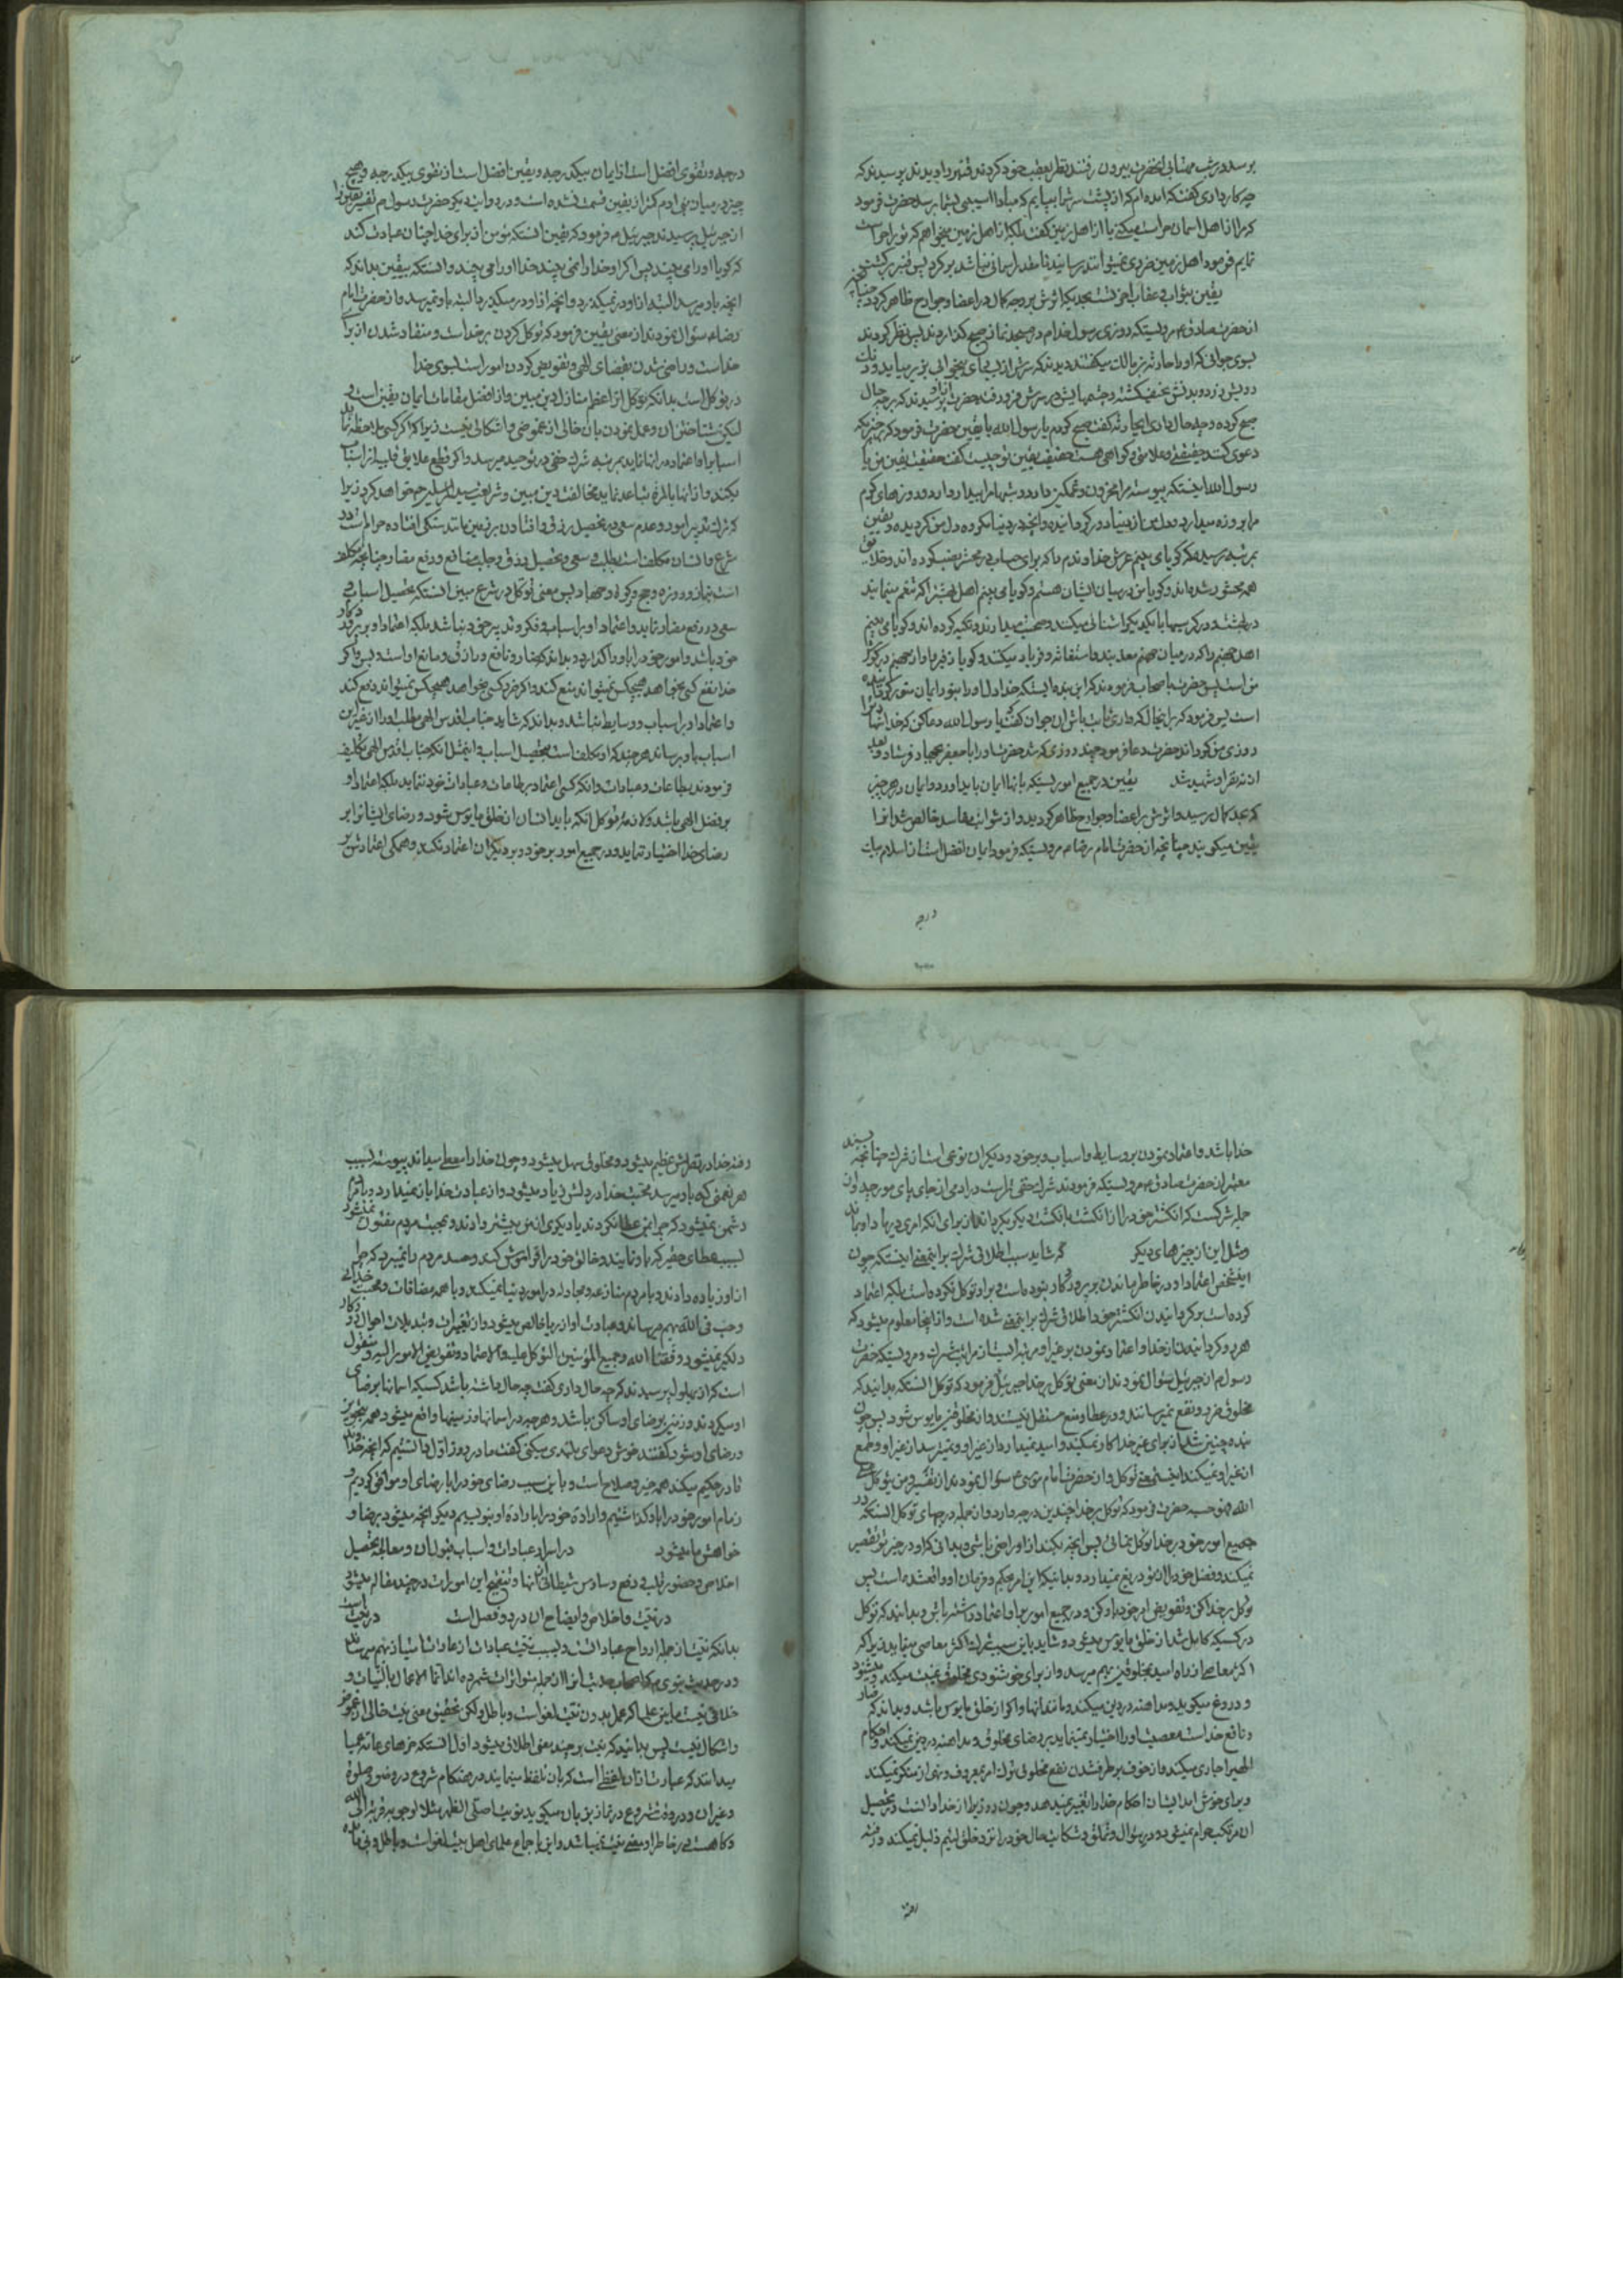 برسد و در شب مهتابی آنحضرت بیرون رفتند نظر بعقب خود کردند قنبر را دیدند پرسیدند که
چه کار داری گفت که آمده‌ام که از پشت سر شما بیایم که مبادا آسیبی بشما برسد حضرت فرمود
که مرا از اهل آسمان حراست میکنی یا از اهل زمین گفت بلکه از اهل زمین میخواهم که تو را حراست
نمایم فرمود اهل زمین ضرری نمیتوانند رسانید تا مقدر آسمانی نباشد برگرد پس قنبر برگشت
یقین بثواب و عقاب آخرتست بحدیکه اثرش بر وجه کمال در اعضا و جوارح ظاهر گردد چنانچه
از حضرت صادق ع مرویست که روزی رسول خدا ص در مسجد نماز صبح گذاردند پس نظر کردند
بسوی جوانی که او را حارثة بن مالک میگفتند دیدند که سرش از بسیاری بیخوابی بزیر میآید و رنگ
رویش زرد و بدنش نحیف گشته و چشمهایش در سرش فرو رفته حضرت از او پرسیدند که بر چه حال
صبح کرده و چه حال داری ای حارثه گفت صبح کردم یا رسول الله با یقین حضرت فرمود که بر هر چیزیکه
دعوی کنند حقیقتی و علامتی و گواهی هست حقیقت یقین تو چیست گفت حقیقت یقین من یا
رسول الله اینستکه پیوسته مرا محزون و غمگین دارد و شبها مرا بیدار دارد و روزهای گرم
مرا بروزه میدارد و دل من از دنیا رو گردانیده و آنچه در دنیاست مکروه دل من گردیده و یقین من
بمرتبه رسیده که گویا می بینم عرش خداوندم را که برای حساب در محشر نصب کرده‌اند و خلایق
همه محشور شده‌اند و گویا من در میان ایشان هستم و گویا می بینم اهل بهشت را که تنعم مینمایند
در بهشت و در کرسیها با یکدیگر آشنائی میکنند و صحبت میدارند و تکیه کرده‌اند و گویا می بینم
اهل جهنم را که در میان جهنم معذبند و استغاثه و فریاد میکنند و گویا زفیر و آواز جهنم در گوش
من است پس حضرت باصحاب فرمودند که این بنده ایستکه خدا دل او را بنور ایمان منور گردانیده
است پس فرمود که بر این حال که داری ثابت باش آن جوان گفت یا رسول الله دعا کن که خدا شهادت را
روزی من گرداند حضرت دعا فرمود چند روزی که شد حضرت او را با جعفر بجهاد فرستاد و بعد
از نه نفر او شهید شد یقین در جمیع امور یستکه بآنها ایمان باید آورد و ایمان در هر چیز
که بحد کمال رسید و اثرش بر اعضا و جوارح ظاهر گردید و از شوائب فاسد خالص شد آنرا
یقین میگویند چنانچه از حضرت امام رضا ع مرویستکه فرمود ایمان افضل است از اسلام بیک
درجه
درجه و تقوی افضل است از ایمان بیکدرجه و یقین افضل است از تقوی بیکدرجه و هیچ
چیز در میان بنی آدم کمتر از یقین قسمت نشده است و در روایت دیگر حضرت رسول ص تفسیر یقین را
از جبرئیل پرسیدند جبرئیل ع فرمود که یقین آنستکه مؤمن از برای خدا چنان عبادت کند
که گویا او را می بیند پس اگر او خدا را نمی بیند خدا او را می بیند و آنستکه بیقین بداند که
آنچه باو میرسد البته از او در نمیگذرد و آنچه از او در میگذرد البته باو نمیرسد و از حضرت امام
رضا ع سؤال نمودند از معنی یقین فرمود که توکل کردن بر خداست و منقاد شدن از برای
خداست و راضی شدن بقضای الهی و تفویض کردن امور است بسوی خدا
در توکل است بدانکه توکل از اعظم منازل دین مبین و از افضل مقامات ایمان یقین است و
لیکن شناختن آن و عمل نمودن بآن خالی از غموضی و اشکالی نیست زیرا که اگر کسی ملاحظه نماید
اسباب را و اعتماد بر آنها نماید بمرتبه شرک خفی در توحید میرسد و اگر قطع علایق قلبیه از اسباب
بکند و از آنها بالمره تباعد نماید مخالفت دین مبین و شریعت سید المرسلین ص خواهد کرد زیرا
که ترک تدبیر امور و عدم سعی در تحصیل رزق و افتادن بر زمین مانند سنگی افتاده حرام است در
شرع و انسان مکلف است بطلب و سعی و تحصیل رزق و جلب منافع و دفع مضار چنانچه مکلف
است بنماز و روزه و حج و زکوة و جهاد پس معنی توکل در شرع مبین آنستکه تحصیل اسباب و
سعی در دفع مضار نماید و اعتماد او بر اسباب و فکر و تدبیر خود نباشد بلکه اعتماد او بر پروردگار
خود باشد و امور خود را باو واگذارد و بداند که ضار و نافع و رازق و مانع اوست و بس و اگر
خدا نفع کسی بخواهد هیچکس نمیتواند منع کند و اگر ضرر کسی خواهد هیچکس نمیتواند دفع کند
و اعتماد او بر اسباب و وسایط نباشد و بداند که شاید جناب اقدس الهی مطلب او را از غیر این
اسباب باو برساند هر چند که او مکلف است بتحصیل اسباب و اینمثل آنکه جناب اقدس الهی تکلیف
فرمودند بطاعات و عبادات و آنکه کسی اعتماد بر طاعات و عبادات خود ننماید بلکه اعتماد او
بر فضل الهی باشد و لازمه توکل آنکه باید انسان از خلق مأیوس شود و رضای ایشانرا بر
رضای خدا اختیار ننماید و در جمیع امور بر خود و بر دیگران اعتماد نکند و همگی اعتمادش بر
خدا باشد و اعتماد نمودن بر وسایط و اسباب و بر خود و دیگران نوعی است از شرک چنانچه بسند
معتبر از حضرت صادق ع مرویستکه فرمودند شرک خفی‌تر است در آدمی از جای پای مورچه و از
جمله شرکست که انگشتر خود را از انگشت بانگشت دیگر بگرداند از برای آنکه امری در یاد او بماند
و مثل این از چیزهای دیگر که شاید سبب اطلاق شرک بر اینمعنی اینستکه چون
اینشخص اعتماد او در خاطر ماندن بر پروردگار نبوده است و بر او توکل نکرده است بلکه اعتماد
کرده است بر گردانیدن انگشتر خود اطلاق شرک بر اینمعنی شده است و از اینجا معلوم میشود که
هر رو گردانیدن از خدا و اعتماد نمودن بر غیر او مرتبه ایست از مراتب شرک و مرویستکه حضرت
رسول ص از جبرئیل سؤال نمودند از معنی توکل بر خدا جبرئیل فرمود که توکل آنستکه بدانید که
مخلوق ضرر و نفع نمیرسانند و در عطا و منع مستقل نیستند و از مخلوقین مأیوس شود پس چون
بنده چنین شد از برای غیر خدا کار نمیکند و امید نمیدارد از غیر او و نمیترسد از غیر او و طمع
از غیر او نمیکند اینست معنی توکل و از حضرت امام موسی ع سؤال نمودند از تفسیر و من یتوکل علی
الله فهو حسبه حضرت فرمود که توکل بر خدا چندین درجه دارد و از جمله درجهای توکل آنستکه در
جمیع امور خود بر خدا توکل نمائی پس آنچه بکند از او راضی باشی و بدانی که او در خیر تو تقصیر
نمیکند و فضل خود را از تو دریغ نمیدارد و بدانیکه این امر بحکم و فرمان او واقع شده است پس
توکل بر خدا کن و تفویض امر خود باو کن و در جمیع امور بر او اعتماد داشته باش و بدانید که توکل
در کسیکه کامل شد از خلق مأیوس میشود و شاید باین سبب ترک اکثر معاصی مینماید زیرا که
اکثر معاصی از راه امید بمخلوقین بهم میرسد و از برای خوشنودی مخلوق غیبت میکند و میشنود
و دروغ میگوید و مداهنه در دین میکند و مانند آنها و اگر از خلق مأیوس باشد و بداند که ضار
و نافع خداست معصیت او را اختیار نمینماید بر رضای مخلوق و مداهنه در دین نمیکند و احکام
الهی را جاری میکند و از خوف برطرف شدن نفع مخلوق ترک امر بمعروف و نهی از منکر نمیکند
و برای خوش آمد ایشان احکام خدا را تغییر نمیدهد و چون روزی را از خدا دانست در تحصیل
آن مرتکب حرام نمیشود و در سؤال و تملق و شکایت حال خود را نزد خلق لئیم ذلیل نمیکند و رفته
رفته
رفته خدا در نظرش عظیم میشود و مخلوق سهل میشود و چون خدا را معطی میداند پیوسته بسبب
هر نعمتی که باو میرسد محبت خدا در دلش زیاد میشود و از عبادت خدا باز نمیدارد و با مردم
دشمن نمیشود که چرا بمن عطا نکردند یا دیگری از من بیشتر دادند و بمحبت مردم مفتون نمیشود
بسبب عطای حقیر که باو نمایند و خالق خود را فراموش کند و حسد مردم را نمیبرد که چرا خدا
از او زیاده دادند و با مردم منازعه و مجادله در امور دنیا نمیکند و با همه مصافات و محبت خدائی
و حب فی الله بهم میرساند و عبادت او از ریا خالص میشود و از تغییرات و تبدیلات احوال روزگار
دلگیر نمیشود وفقنا الله و جمیع المؤمنین التوکل علیه و الاعتماد و تفویض الامور الیه و منقول
است که از بهلول پرسیدند که چه حال داری گفت چه حال داشته باشد کسیکه آسمانها برضای
او میگردند و زمین برضای او ساکن باشد و هر چه در آسمانها و زمینها واقع میشود همه بتجویز
و رضای او شود گفتند خوش دعوای بلندی میکنی گفت ما در روز اول دانستیم که آنچه خداوند
قادر حکیم میکند همه خیر و صلاح است و باین سبب رضای خود را با رضای او موافق کردیم و
زمام امور خود را باو گذاشتیم و اراده خود را باراده او بنمودیم دیگر آنچه میشود برضا و
خواهش ما میشود در اسرار عبادات و اسباب قبول آن و معالجه تحصیل
اخلاص و حضور قلب و دفع وساوس شیطانی از آنها و توضیح این امور است در چند مقاله میشود
در نیت و اخلاص و ایضاح آن در دو فصل است در نیت است
بدانکه نیت از جمله ارواح عبادات است و بسبب نیت عبادات از عادات امتیاز بهم میرساند
و در حدیث نبوی ص که اصحاب حدیث آنرا از جمله متواترات شمرده‌اند انما الاعمال بالنیات و
خلافی نیست مابین علما که عمل بدون نیت لغو است و باطل و لیکن تحقیق معنی نیت خالی از غموض
و اشکال نیست پس بدانید که نیت بر چند معنی اطلاق میشود اول آنستکه حرفهای عامه عمیا
میدانند که عبارت از آن لفظی است که بآن تلفظ مینمایند در هنگام شروع در وضو و صلوة
و غیر آن و در وقت شروع در نماز بزبان میگویند نویت اصلی الظهر مثلا لوجوبه قربة الی الله
و گاهست در خاطر او معنی نیت نمیباشد و این باجماع علمای اهل بیت لغو است و باطل و بی فایده